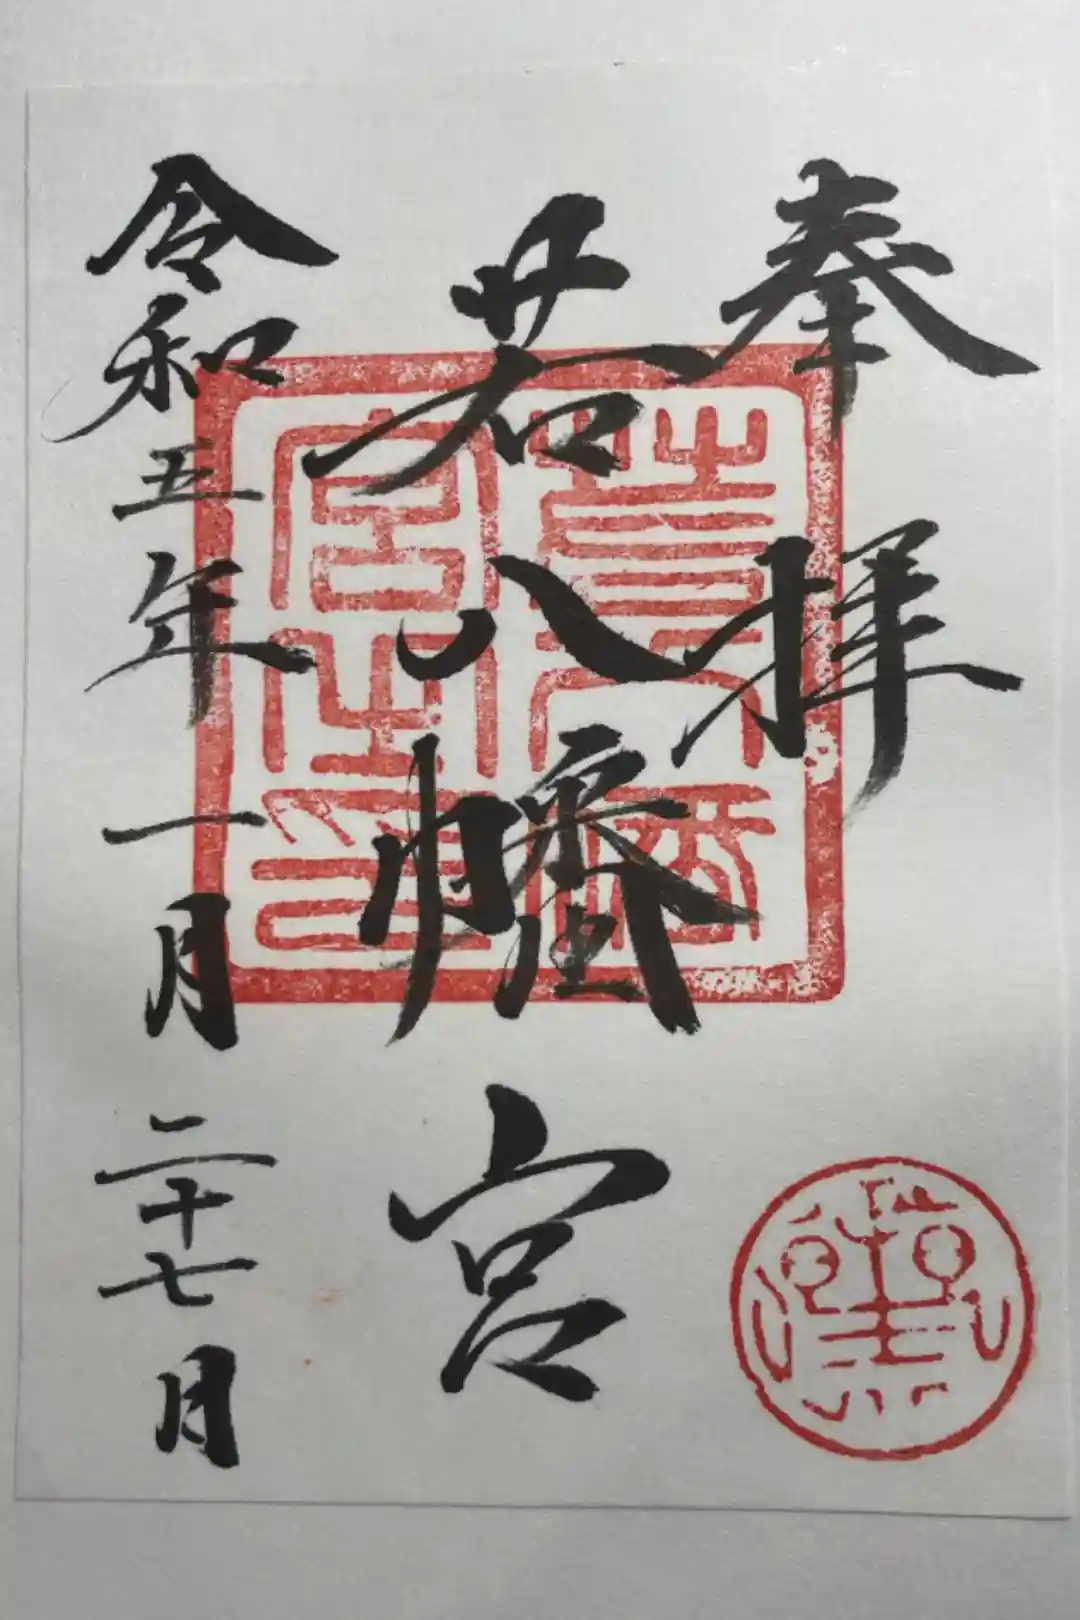 奉拝
若八幡宮
令和五年一月二十七日
若八幡宮之印